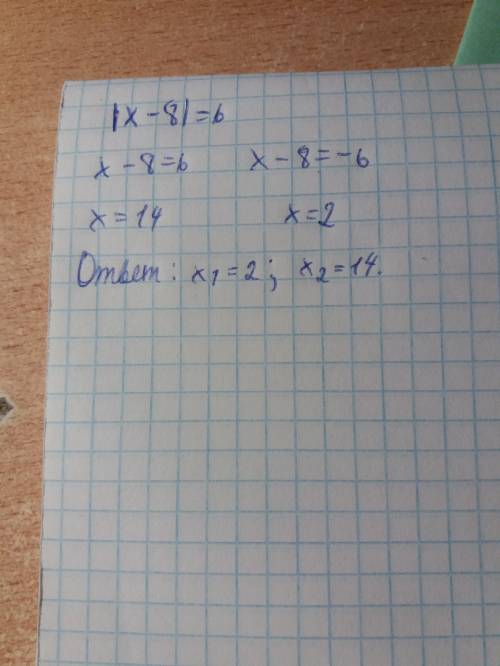 |x - 8| = 6
x - 8 = 6 x - 8 = -6
x = 14 x = 2
Ответ: x₁ = 2; x₂ = 14.